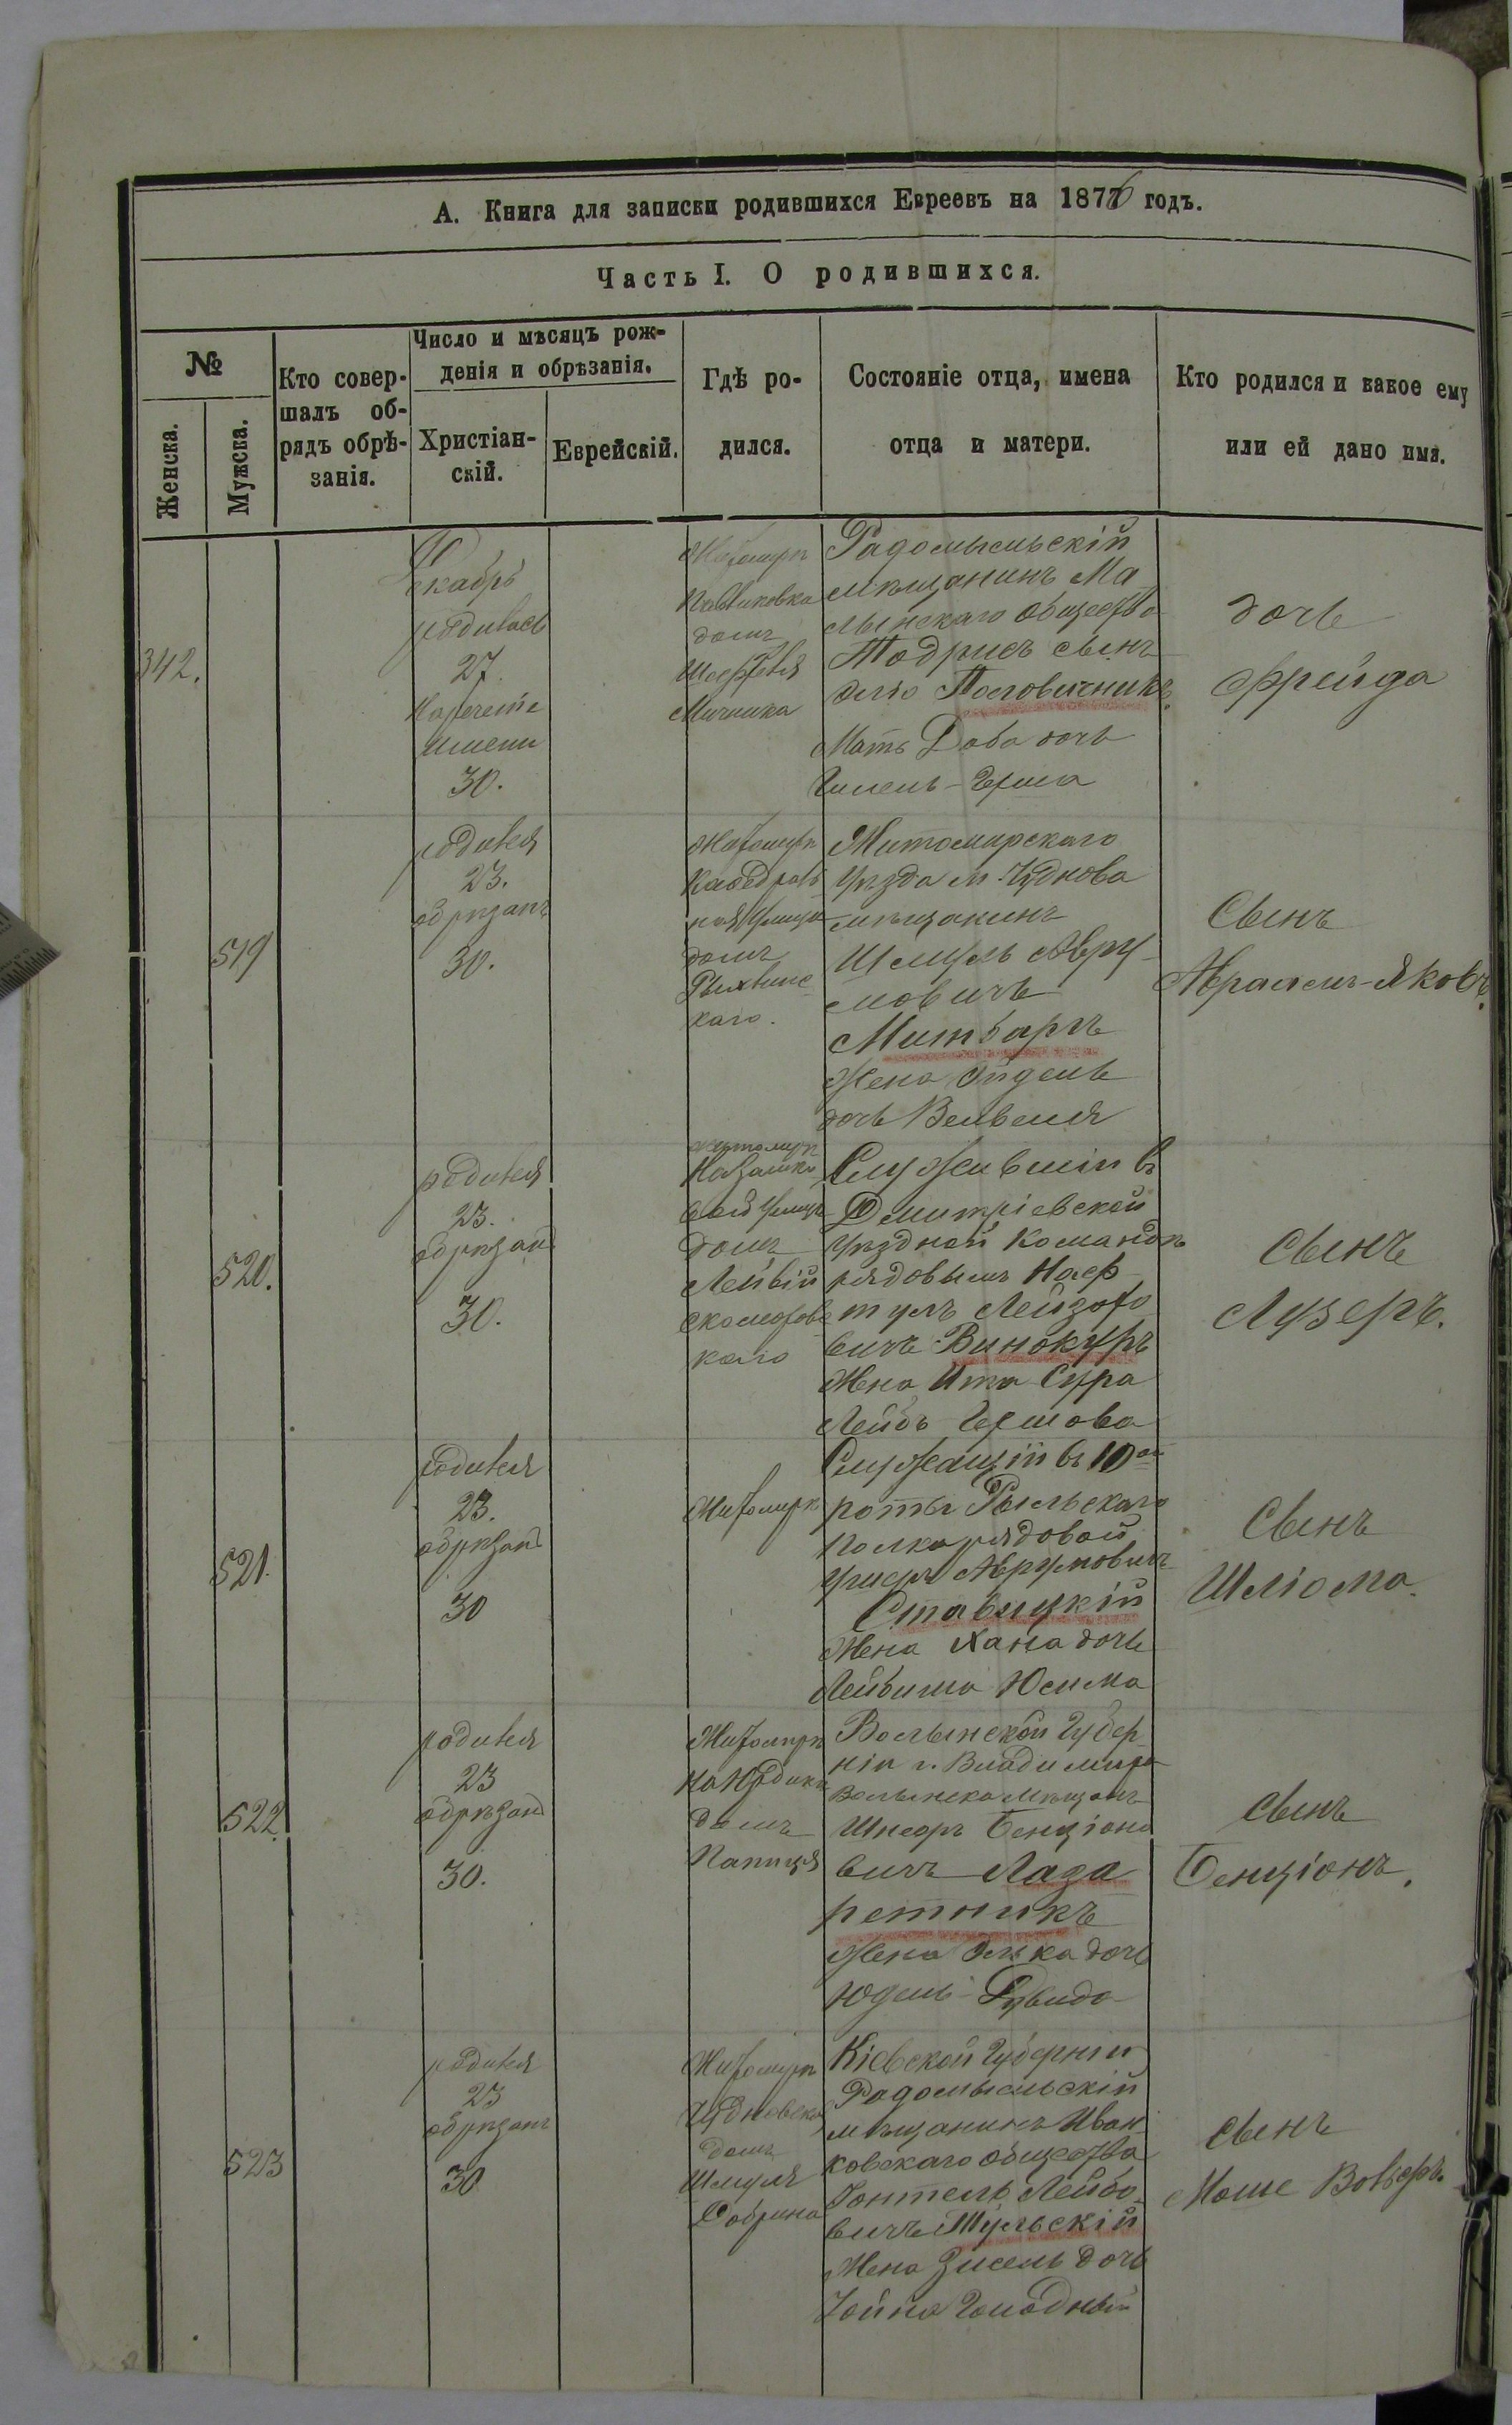 А. Книга для записки родившихся Евреевъ на 1876 годъ.
Часть I. О родившихся.
№
Женска.
Мужска.
Кто совер-
шалъ об-
рядъ обрѣ-
занія.
Число и мѣсяцъ рож-
денія и обрѣзанія.
Христіан-
скій.
Еврейскій.
Гдѣ ро-
дился.
Состояніе отца, имена
отца и матери.
Кто родился и какое ему
или ей дано имя.
342.
Декабрь
родилась
27.
Наречение
имени
30.
Житомиръ
Павликовка
домъ
Мичника
Радомысльскій
мѣщанинъ Ма
лынскаго общества
Тодрисъ сынъ
Пословичникъ
Мать Доба дочь
Гилель-Герша
дочь
Фрейда
519
родился
23.
обрѣзанъ
30.
Житомиръ
Кафедраль
ная улица
домъ
Рыхвинс
каго.
Житомирскаго
уѣзда м. Чуднова
мѣщанинъ
Шмуль Авру-
мовичъ
Митбаръ
Жена Эйдель
дочь Вельвеля
Сынъ
Абрамъ-Яковъ.
520.
родился
23.
обрѣзанъ
30.
житомиръ
улица
домъ
Лейвій
скоморовс
каго
Служившій въ
Дмитріевской
уѣздной командѣ
рядовымъ Наф
тулъ Лейзоро
вичъ Винокуръ
Жена Ита Сура
Лейбъ Гершова
сынъ
Лузеръ.
521.
родился
23.
обрѣзанъ
30
Житомиръ
Служащій въ 10ой
роты Рыльскаго
полка рядовой
Аврумовичъ
Ставицкій
Жена Хана дочь
Лейбиша Юсима
Сынъ
Шліома.
522.
родился
23
обрѣзанъ
30.
Житомиръ
домъ
Волынской Губер
ніи г. Владимира
Волынска мѣщанъ
Шнеоръ Бенціоно
вичъ Лаза
ретникъ
Жена дочь
Юдель-
сынъ
Бенціонъ.
523
родился
23
обрѣзанъ
30
Житомиръ
Чудновская
домъ
Шмуля
Собрина
Кіевской Губерніи
Радомысльскій
мѣщанинъ Иван
ковскаго общества
Іонтель Лейбо
вичъ Тульскій
Жена Зисель дочь
Іойна Голодный
сынъ
Моше Вольфъ.